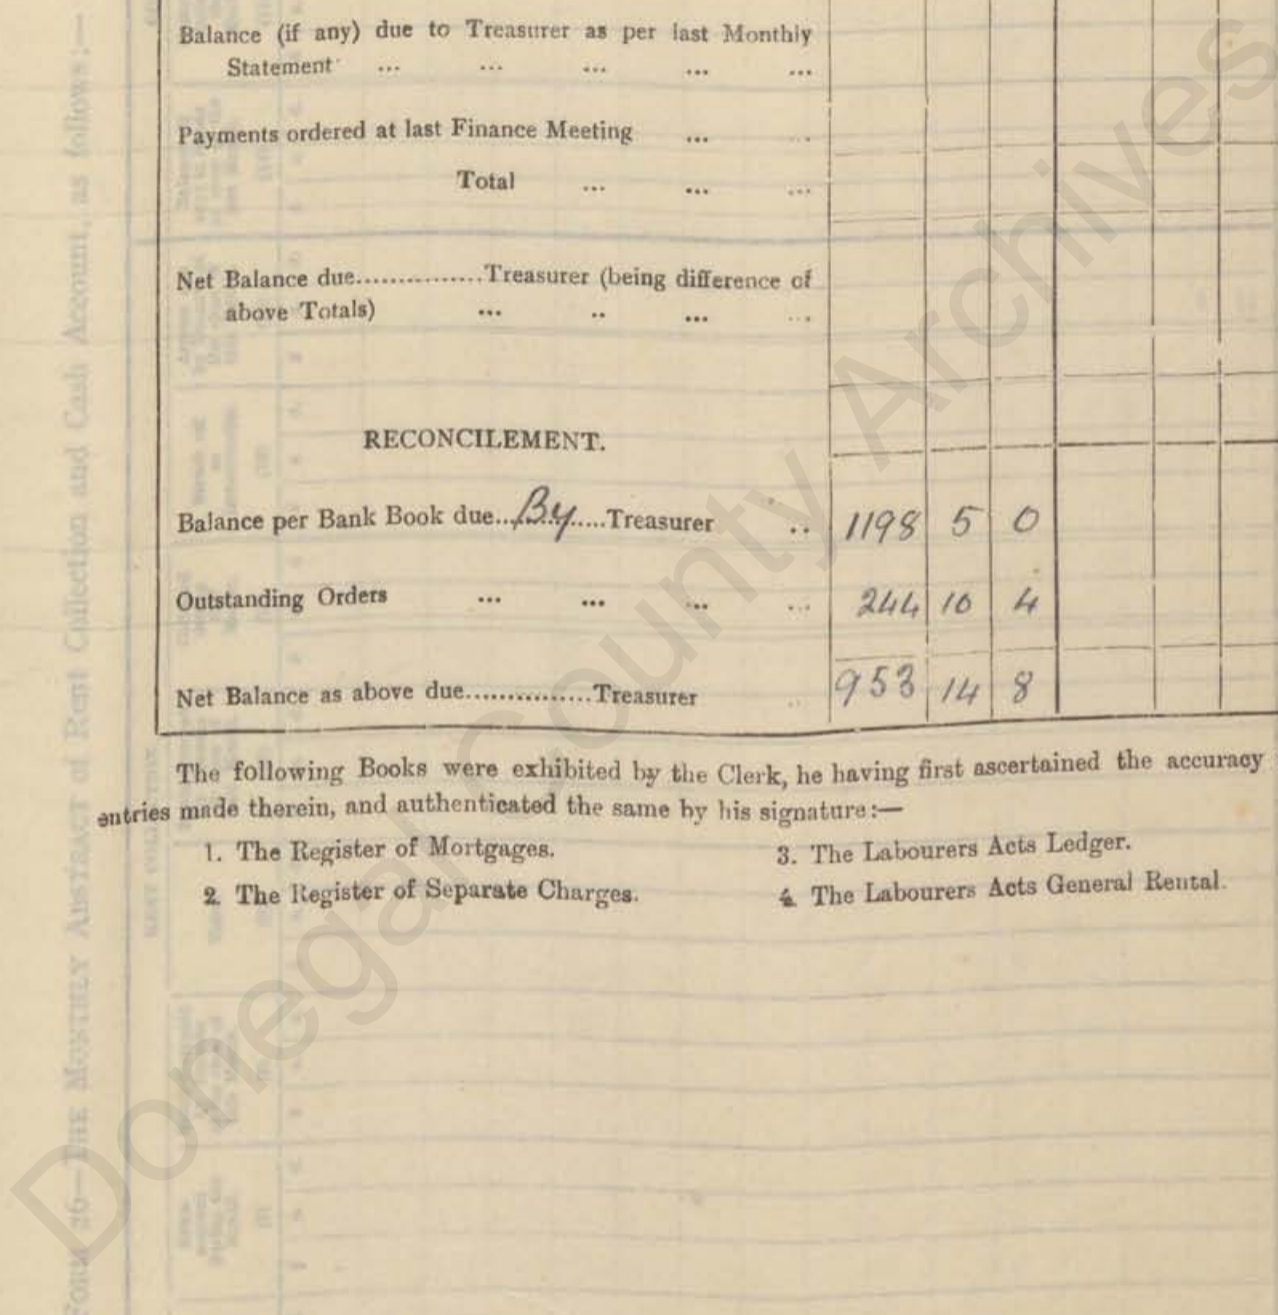 Balance (if any) due to Treasurer as per last Monthly
Statement ... ... ... ... ...
Payments ordered at last Finance Meeting ... ...
Total ... ... ...
Net Balance due...............Treasurer (being difference of
above Totals) ... .. ... ...
RECONCILEMENT.
Balance per Bank Book due..By.....Treasurer .. 1198 5 0
Outstanding Orders ... ... ... ... 244 10 4
Net Balance as above due...............Treasurer .. 953 14 8
The following Books were exhibited by the Clerk, he having first ascertained the accuracy
entries made therein, and authenticated the same by his signature:—
1. The Register of Mortgages.
3. The Labourers Acts Ledger.
2. The Register of Separate Charges.
4. The Labourers Acts General Rental.
Form 26—The Monthly Abstract of Rent Collection and Cash Account, as follows:—
Donegal County Archives